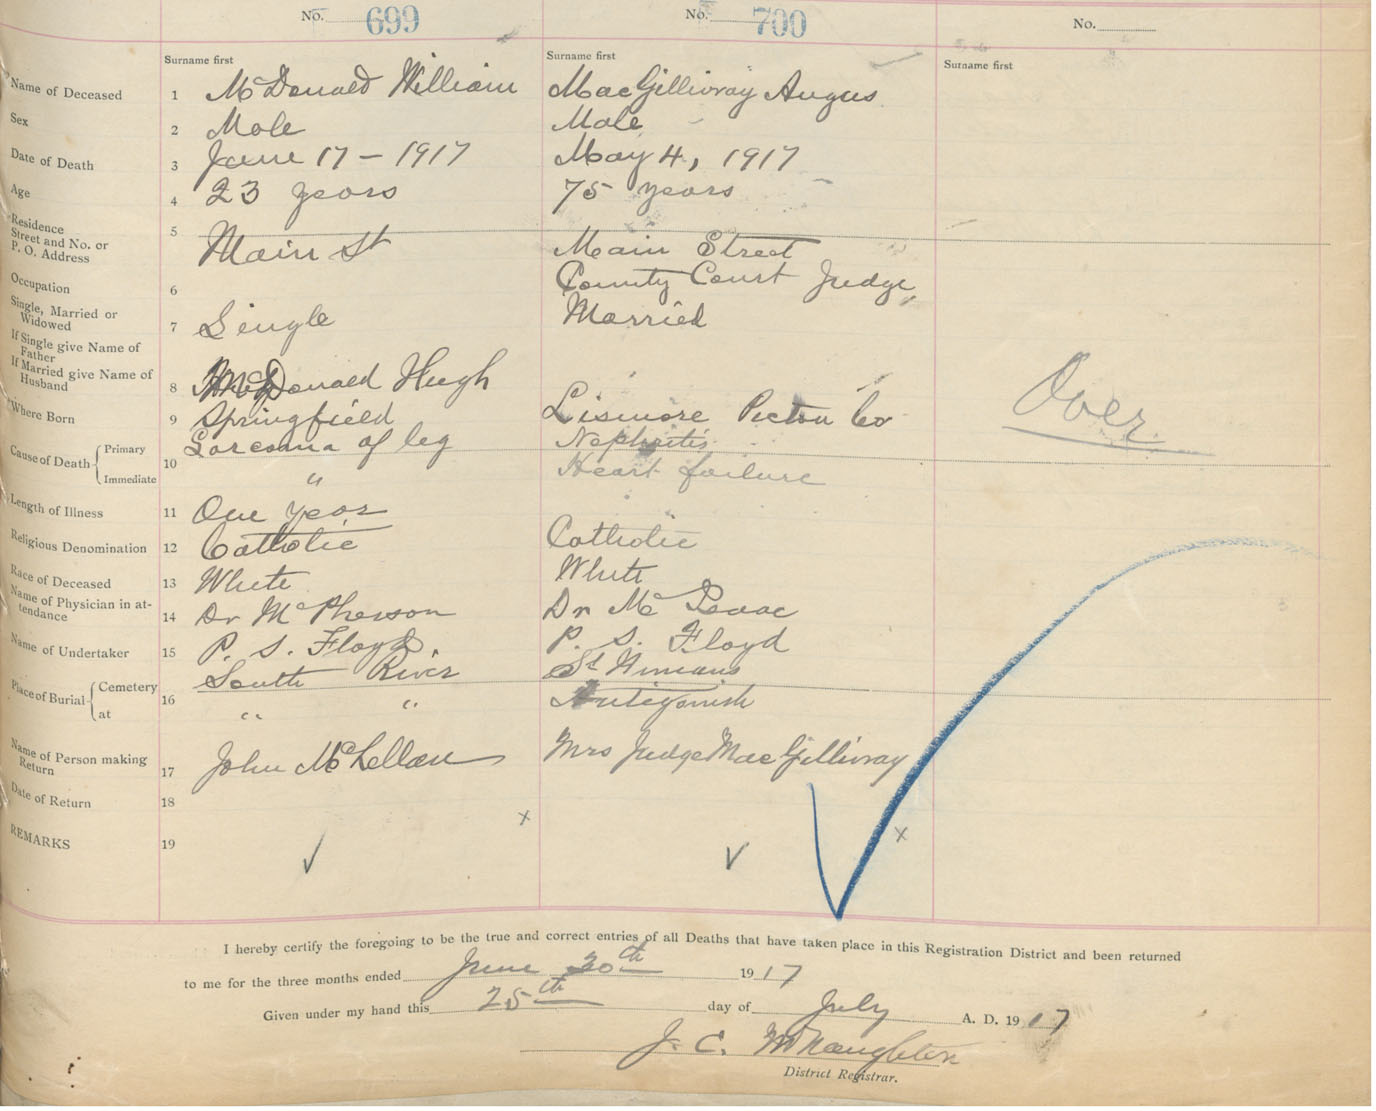 No. 699 No. 700 No.
Surname first Surname first Surname first
Name of Deceased 1 McDonald William MacGillivray Angus
Sex 2 Male Male
Date of Death 3 June 17 - 1917 May 4, 1917
Age 4 23 years 75 years
Residence
Street and No. or
P. O. Address 5 Main St Main Street
Occupation 6 County Court Judge
Single, Married or
Widowed 7 Single Married
If Single give Name of
Father
If Married give Name of
Husband 8 McDonald Hugh
Where Born 9 Springfield Lismore Pictou Co
Cause of Death Primary Sarcoma of leg Nephritis
10
Immediate " Heart failure
Length of Illness 11 One year
Religious Denomination 12 Catholic Catholic
Race of Deceased 13 White White
Name of Physician in at-
tendance 14 Dr McPherson Dr Mc Isaac
Name of Undertaker 15 P. S. Floyd P. S. Floyd
Place of Burial Cemetery South River St Ninians
16
at " " Antigonish
Name of Person making
Return 17 John McLellan Mrs Judge MacGillivray
Date of Return 18
REMARKS 19
Over
I hereby certify the foregoing to be the true and correct entries of all Deaths that have taken place in this Registration District and been returned
to me for the three months ended June 30th 1917
Given under my hand this 25th day of July A. D. 1917
J. C. McNaughton
District Registrar.